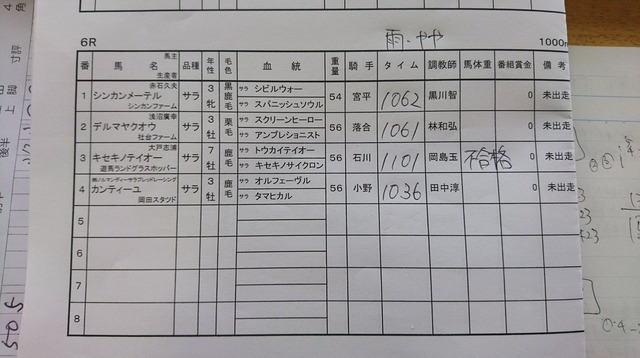 6R 雨・やや 1000m
番 馬名 馬主 生産者 品種 年性 毛色 血統 重量 騎手 タイム 調教師 馬体重 番組賞金 備考
1 シンカンメーテル 赤石久夫 シンカンファーム サラ 3牝 黒鹿毛 サラ シビルウォー サラ スパニッシュソウル 54 宮平 1062 黒川智 0 未出走
2 デルマヤクオウ 浅沼廣幸 社台ファーム サラ 3牡 栗毛 サラ スクリーンヒーロー サラ アンプレショニスト 56 落合 1061 林和弘 0 未出走
3 キセキノテイオー 大戸志浦 遊馬ランドグラスホッパー サラ 7牡 鹿毛 サラ トウカイテイオー サラ キセキノサイクロン 56 石川 1101 岡島玉 不合格 0 未出走
4 カンティーユ ㈱ノルマンディーサラブレッドレーシング 岡田スタツド サラ 3牡 鹿毛 サラ オルフェーヴル サラ タマヒカル 56 小野 1036 田中淳 0 未出走
5
6
7
8
4角
寸評
後半
上
脚
505